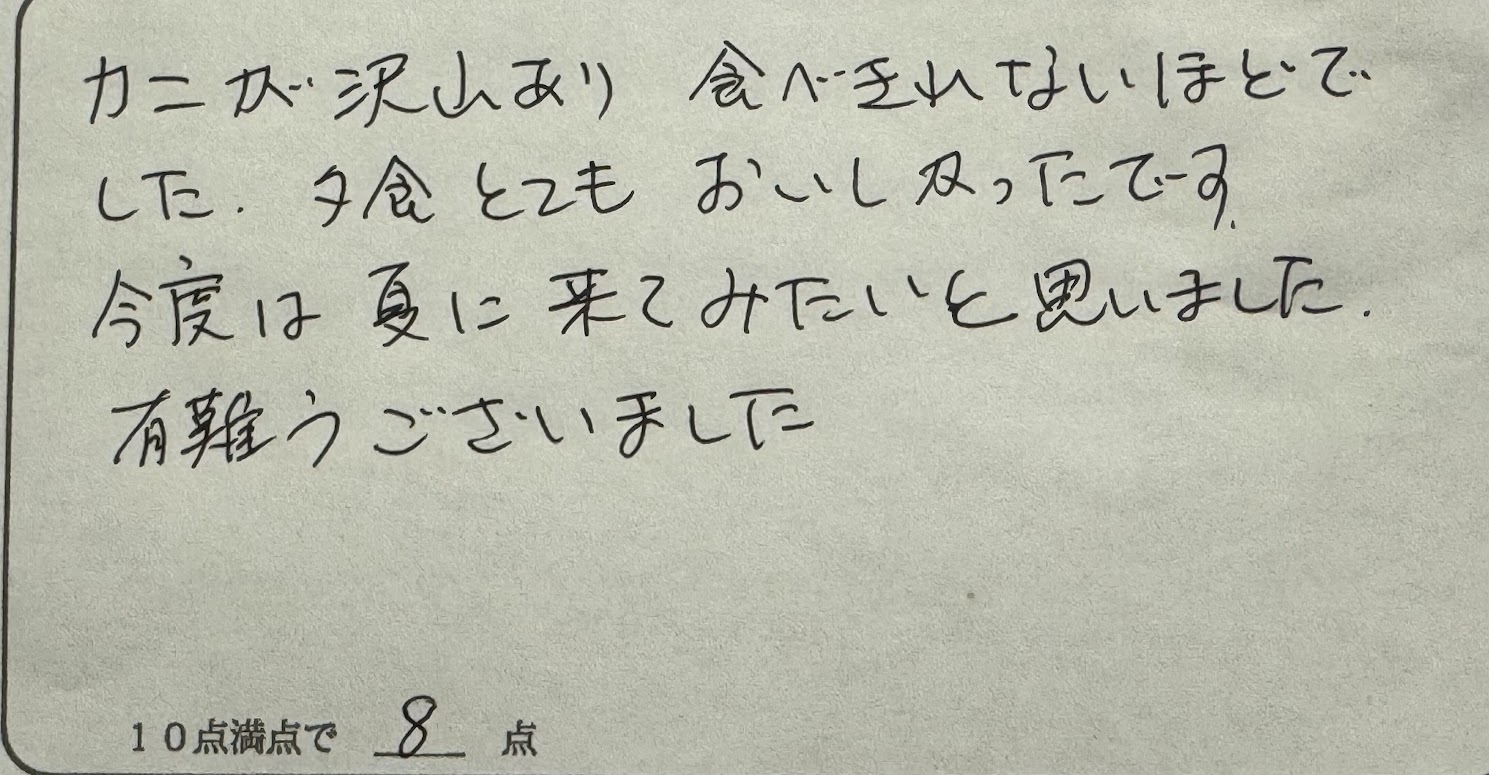 カニが沢山あり 食べきれないほどで
した. 夕食とても おいしかったです.
今度は夏に来てみたいと思いました.
有難うございました
10点満点で 8 点